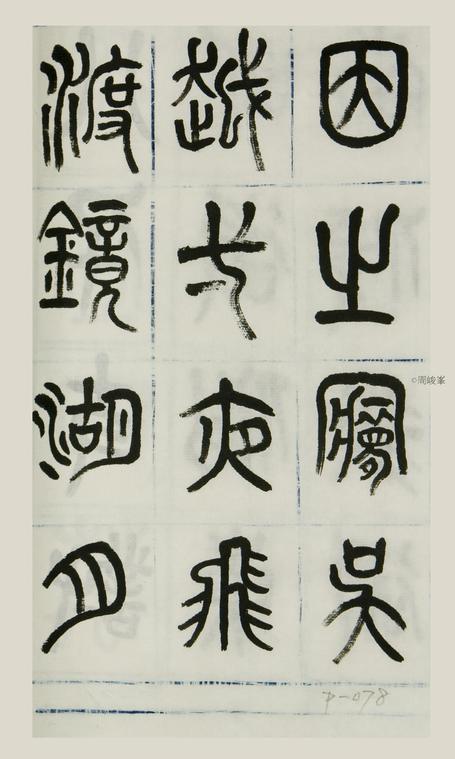 因之夢吳
越一夜飛
渡鏡湖月
©周峻峯
P-078